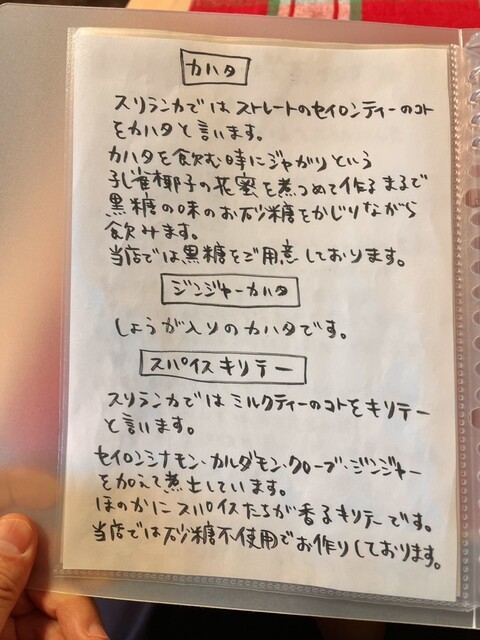 カハタ
スリランカではストレートのセイロンティーのコト
をカハタと言います。
カハタを飲む時にジャがリという
孔雀椰子の花蜜を煮つめて作るまるで
黒糖の味のお砂糖をかじりながら
飲みます。
当店では黒糖をご用意しております。
ジンジャーカハタ
しょうが入りのカハタです。
スパイスキリテー
スリランカではミルクティーのコトをキリテー
と言います。
セイロンシナモン・カルダモン・クローブ・ジンジャー
を加えて煮出しています。
ほのかにスパイスたちが香るキリテーです。
当店では砂糖不使用でお作りしております。